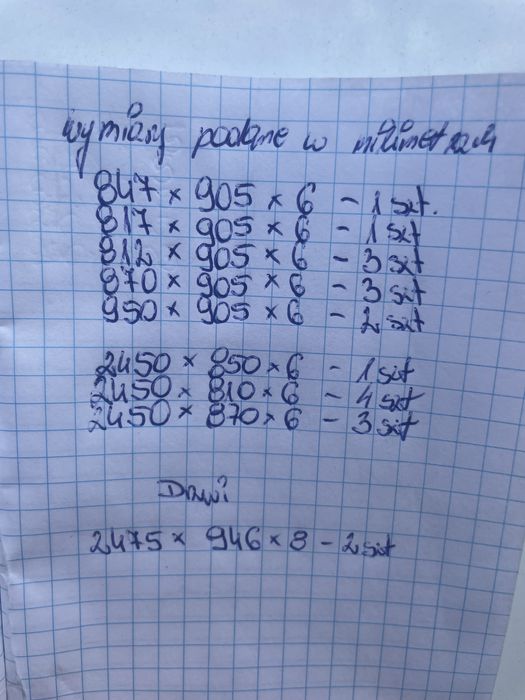 wymiary podane w milimetrach
847 × 905 × 6 - 1 szt.
817 × 905 × 6 - 1 szt
812 × 905 × 6 - 3 szt
870 × 905 × 6 - 3 szt
950 × 905 × 6 - 2 szt
2450 × 850 × 6 - 1 szt
2450 × 810 × 6 - 4 szt
2450 × 870 × 6 - 3 szt
Drzwi
2475 × 946 × 8 - 2 szt